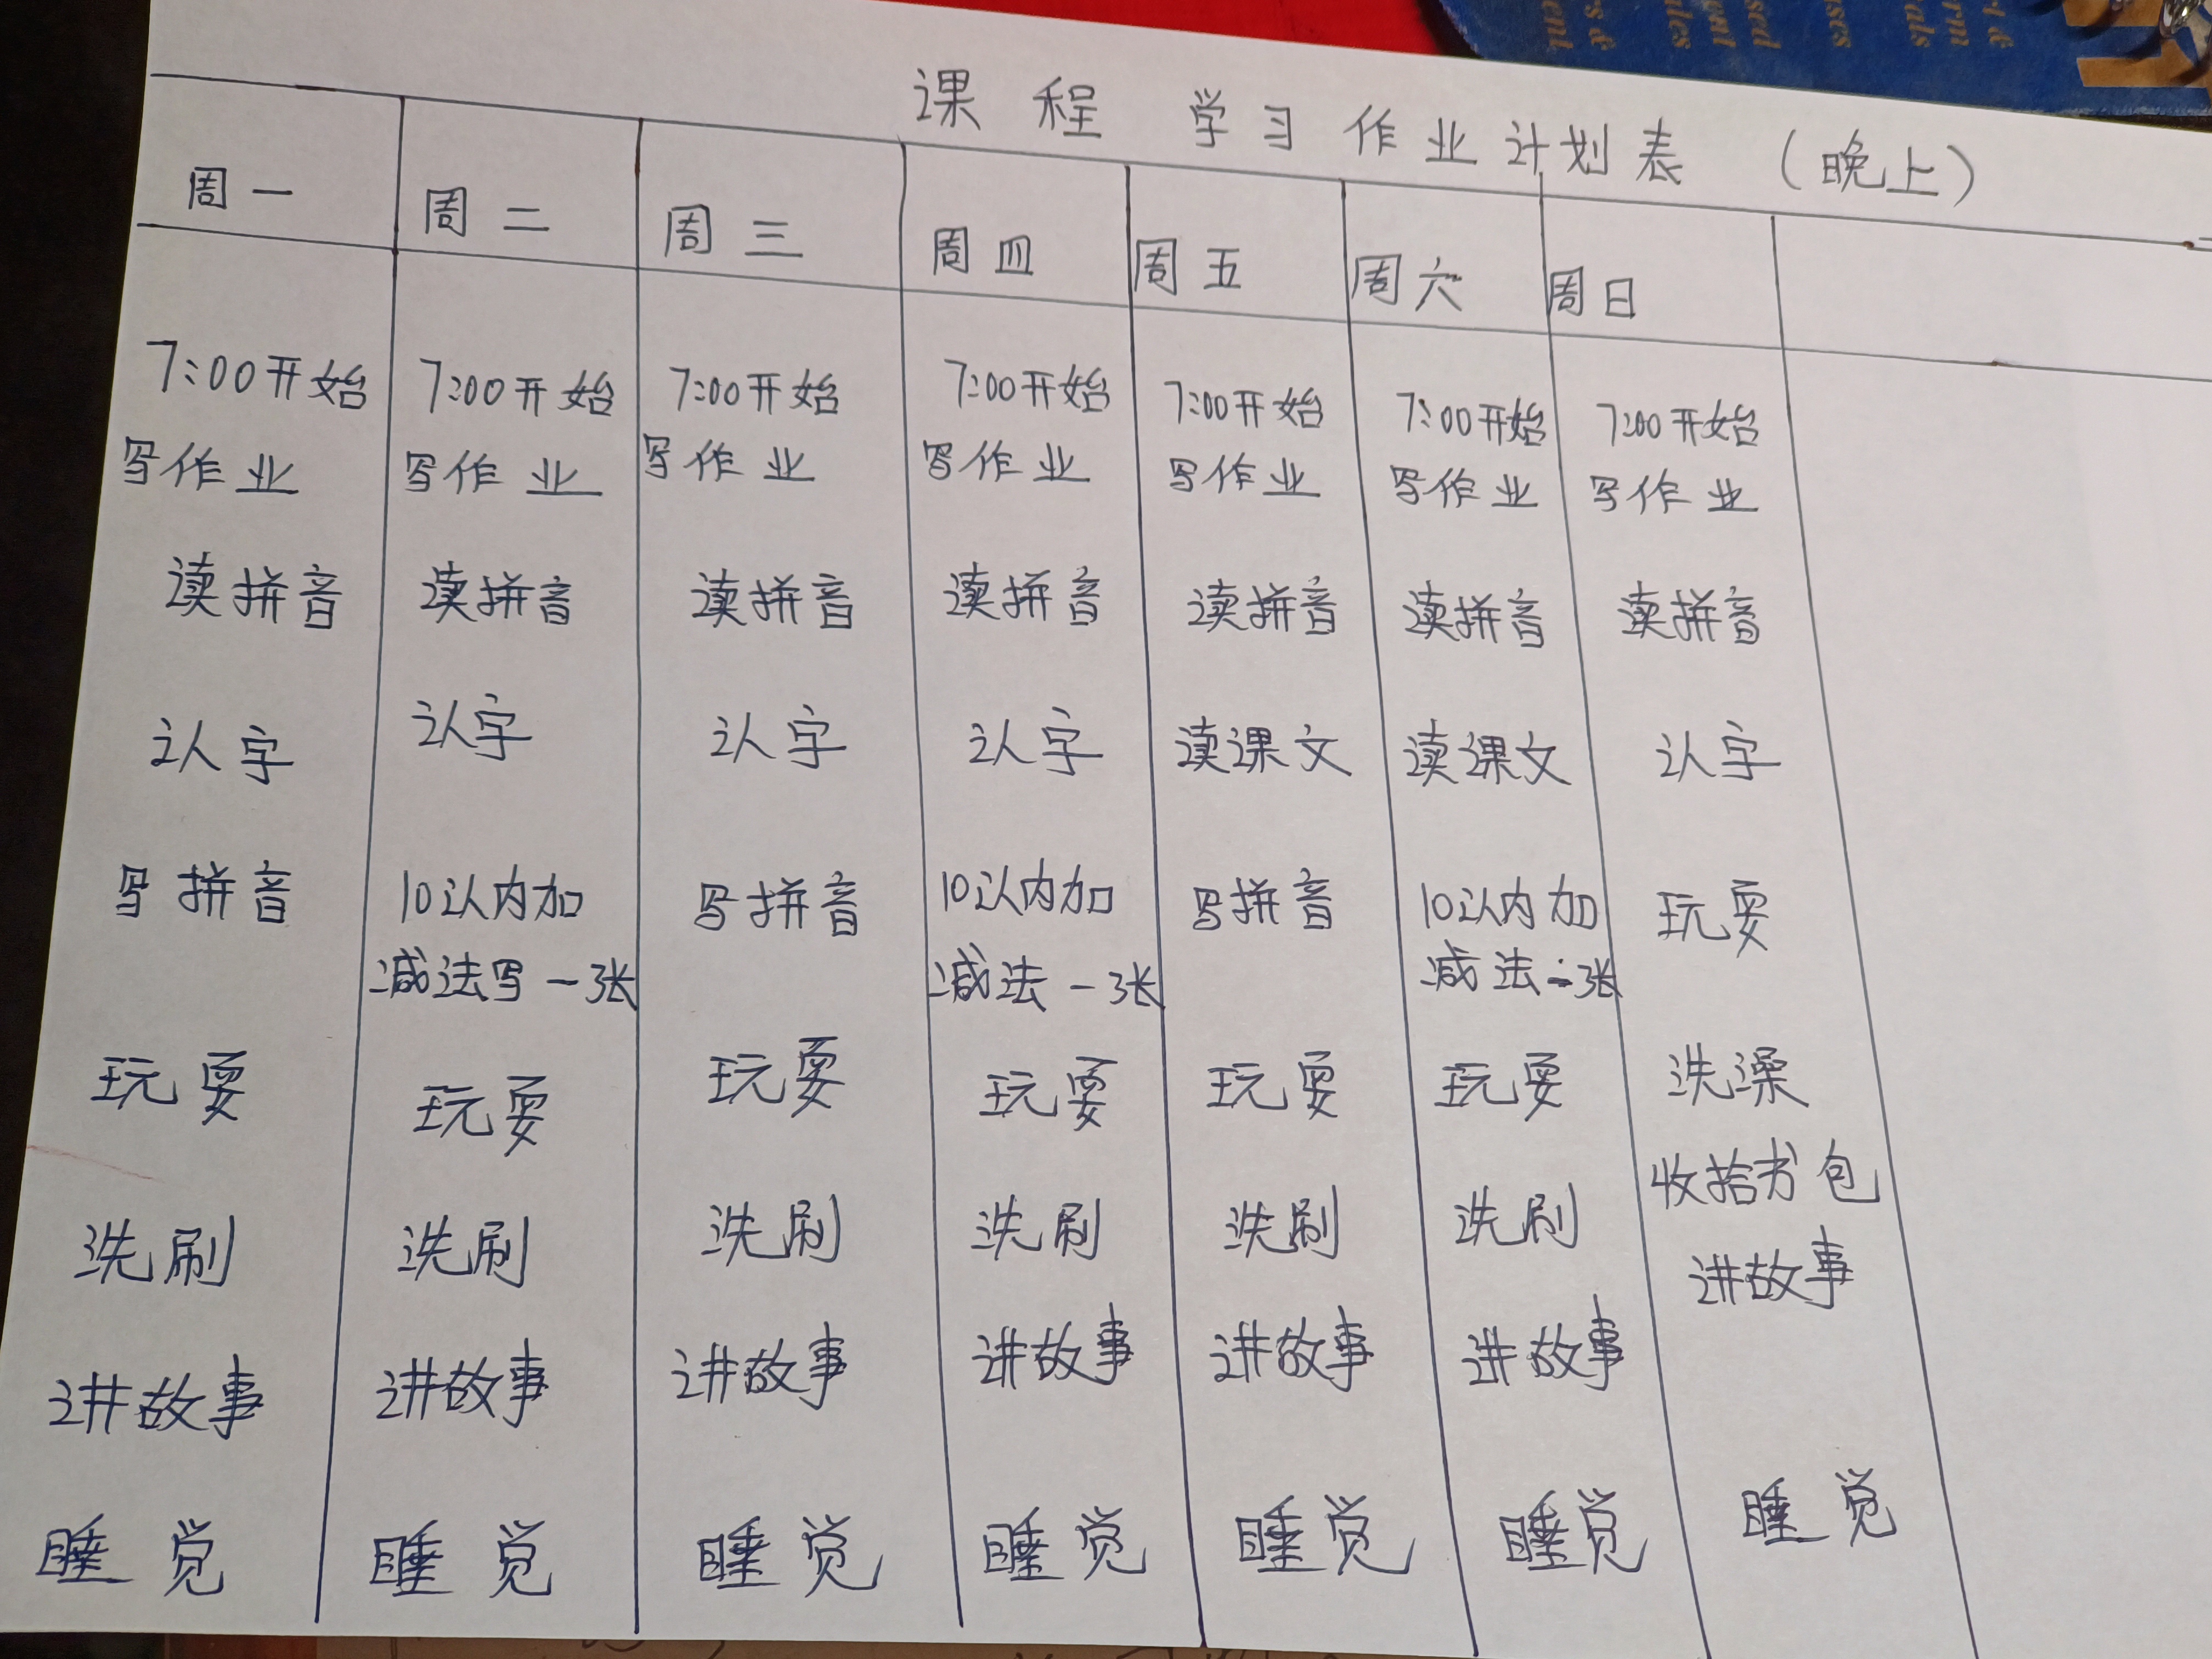 课程 学习作业计划表 (晚上)
周一 周二 周三 周四 周五 周六 周日
7:00开始 7:00开始 7:00开始 7:00开始 7:00开始 7:00开始 7:00开始
写作业 写作业 写作业 写作业 写作业 写作业 写作业
读拼音 读拼音 读拼音 读拼音 读拼音 读拼音 读拼音
认字 认字 认字 认字 读课文 读课文 认字
写拼音 10以内加 写拼音 10以内加 写拼音 10以内加 玩耍
减法写一张 减法一张 减法一张
玩耍 玩耍 玩耍 玩耍 玩耍 玩耍 洗澡
收拾书包
洗刷 洗刷 洗刷 洗刷 洗刷 洗刷 讲故事
讲故事 讲故事 讲故事 讲故事 讲故事 讲故事
睡觉 睡觉 睡觉 睡觉 睡觉 睡觉 睡觉